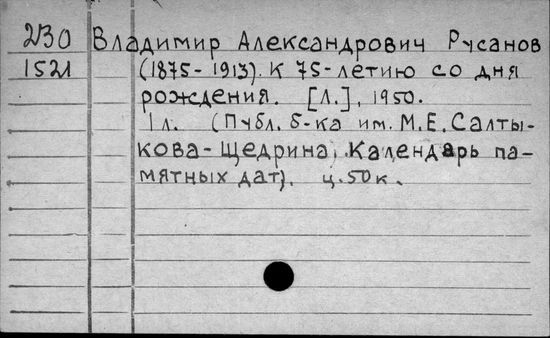 2/30 Владимир Александрович Русанов
1521 (1875-1913). К 75-летию со дня
рождения. [Л.], 1950.
1 л. (Публ. б-ка им. М.Е. Салты-
кова-Щедрина, Календарь па-
мятных дат). ц. 50 к.